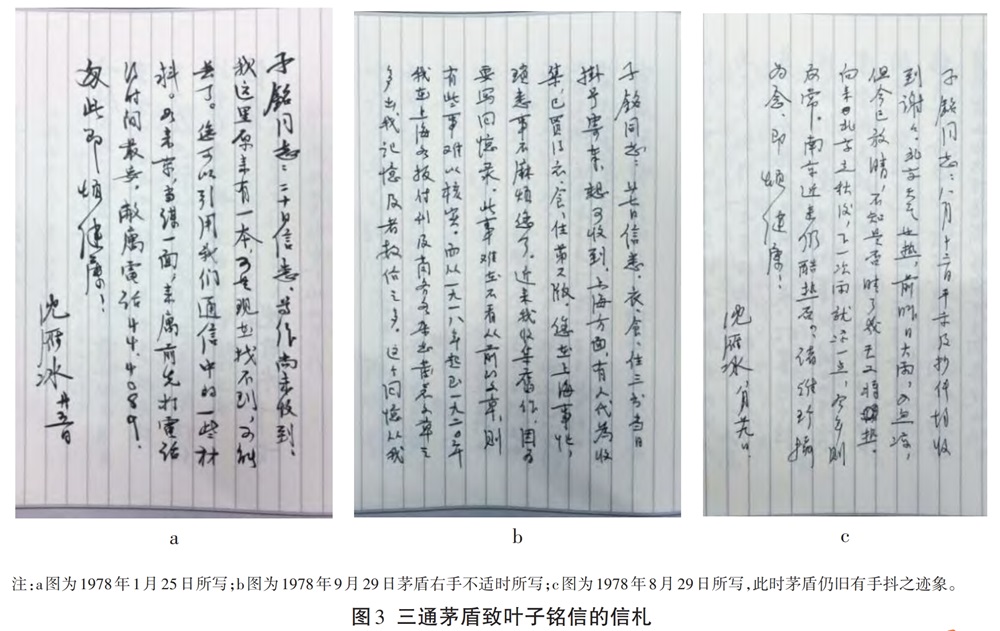 子铭同志：二十日信悉，尊作尚未收到；
我这里原来有一本，可是现在找不到，可能
丢了。您可以引用我们通信中的一些材
料。如来京，当谋一面，来寓前先打电话
约时间最妥。敝寓电话44.4089。
匆此即颂健康！
沈雁冰 廿五日
子铭同志：廿七日信悉。衣、食、住三书当日
挂号寄来，想可收到，上海方面，有人代为收
集，已买得衣、食、住第又版。您在上海事忙，
琐事不麻烦您了。近来我收集旧作，因为
要写回忆录。些事难在不看从前的文章，则
有些事难以核实。而从一九一八年起至一九二〇年
我在上海各报付刊及商务各杂志发表文章之
多出我记忆及者数倍之多。这个回忆从我
子铭同志：八月十三日
到谢谢。北京天气也热，前昨日大雨，
但今已放晴，不知是否晴了几天又将热。
向来北京立秋后，下一次雨就凉一点，今年则
反常。南京近来仍酷热否？诸维珍摄
为念，即颂健康！
沈雁冰 八月廿九日
a
b
c
注：a图为1978年1月25日所写；b图为1978年9月29日茅盾右手不适时所写；c图为1978年8月29日所写，此时茅盾仍旧有手抖之迹象。
图3 三通茅盾致叶子铭信的信札